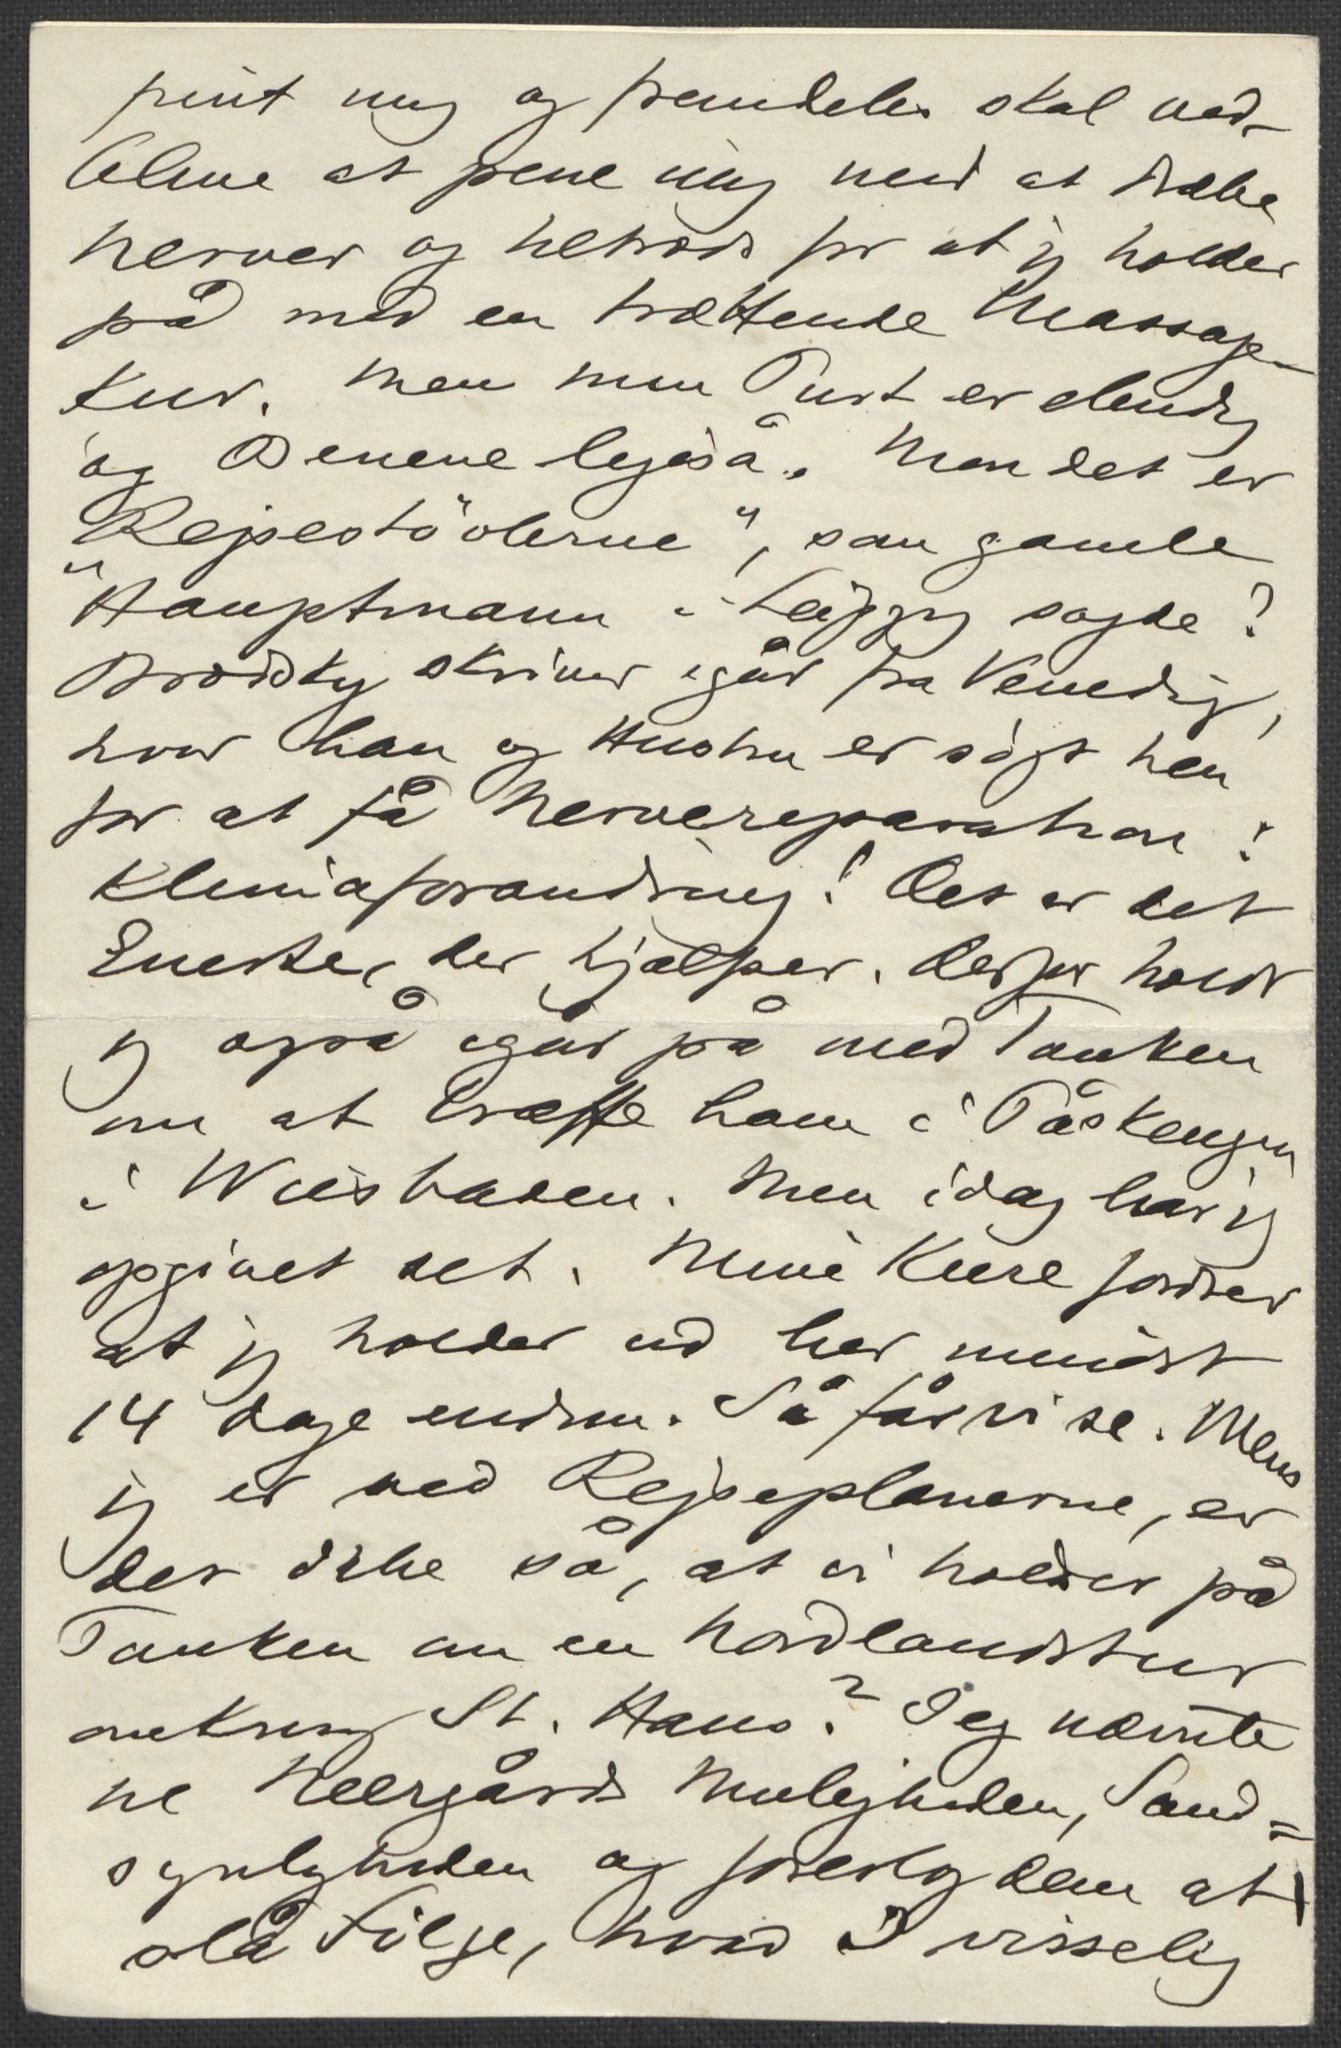 pint mig og fremdeles skal ved-
blive at pine mig med at dræbe
Nerver og tiltrods for at jeg holder
på med en trættende Massage-
kur. Men min Pust er elendig
og Benene ligeså. Men det er
"Rejsestövlerne", som gamle
"Hauptmann i Leipzig sagde!
Brodsky skriver igår fra Venedig,
hvor han og Hustru er søgt hen
for at få Nervereparation!
Klimaforandring! Det er det
Eneste, der hjælper. Derfor holdt
jeg også igår på med Tanken
om at træffe ham i Påskeugen
i Wiesbaden. Men idag har jeg
opgivet det. Mine Kure fordrer
at jeg holder ud her mindst
14 Dage endnu. Så får vi se. Mens
jeg er ved Rejseplanerne, er
det ikke så, at vi holder på
Tanken om en Nordlandstur
omkring St. Hans? Jeg nævnte
til Neergårds Muligheden, Sand=
synligheden og foreslog dem at
slå Følge, hvad I visselig